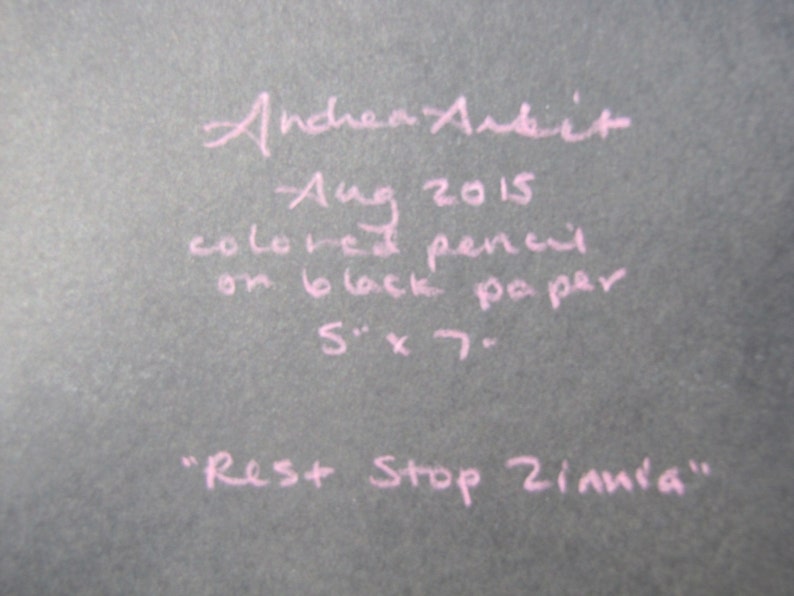 Andrea
Aug 2015
colored pencil
on black paper
5" x 7"
"Rest Stop Zinnia"